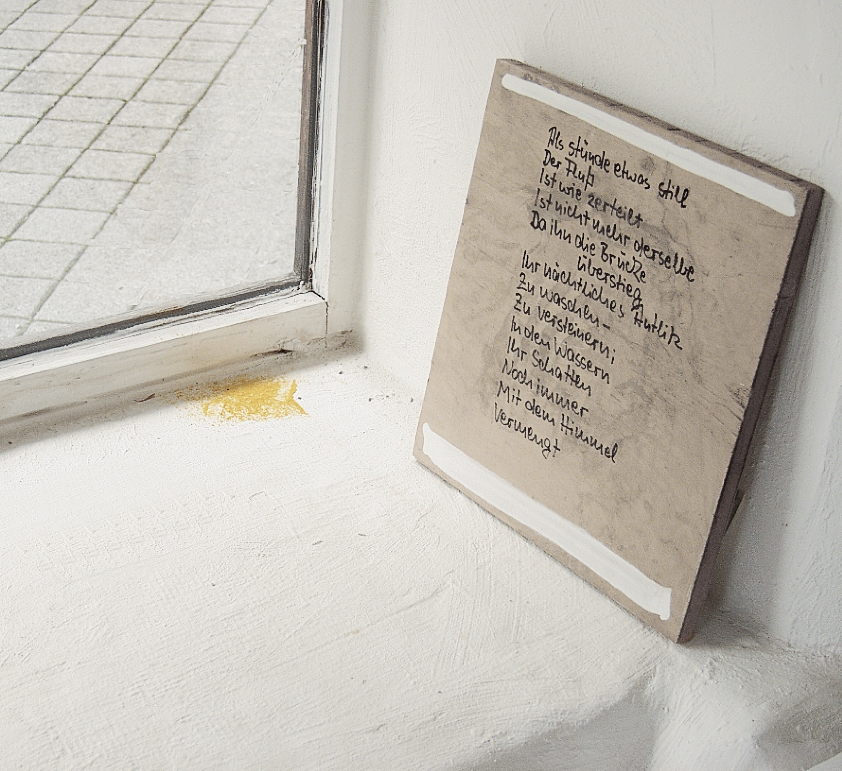 Als stünde etwas still
Der Fluß
Ist wie zerteilt
Ist nicht mehr derselbe
Da ihn die Brücke
überstieg
Ihr nächtliches Antlitz
Zu waschen-
Zu versteinern;
In den Wassern
Ihr Schatten
Noch immer
Mit dem Himmel
Vermengt